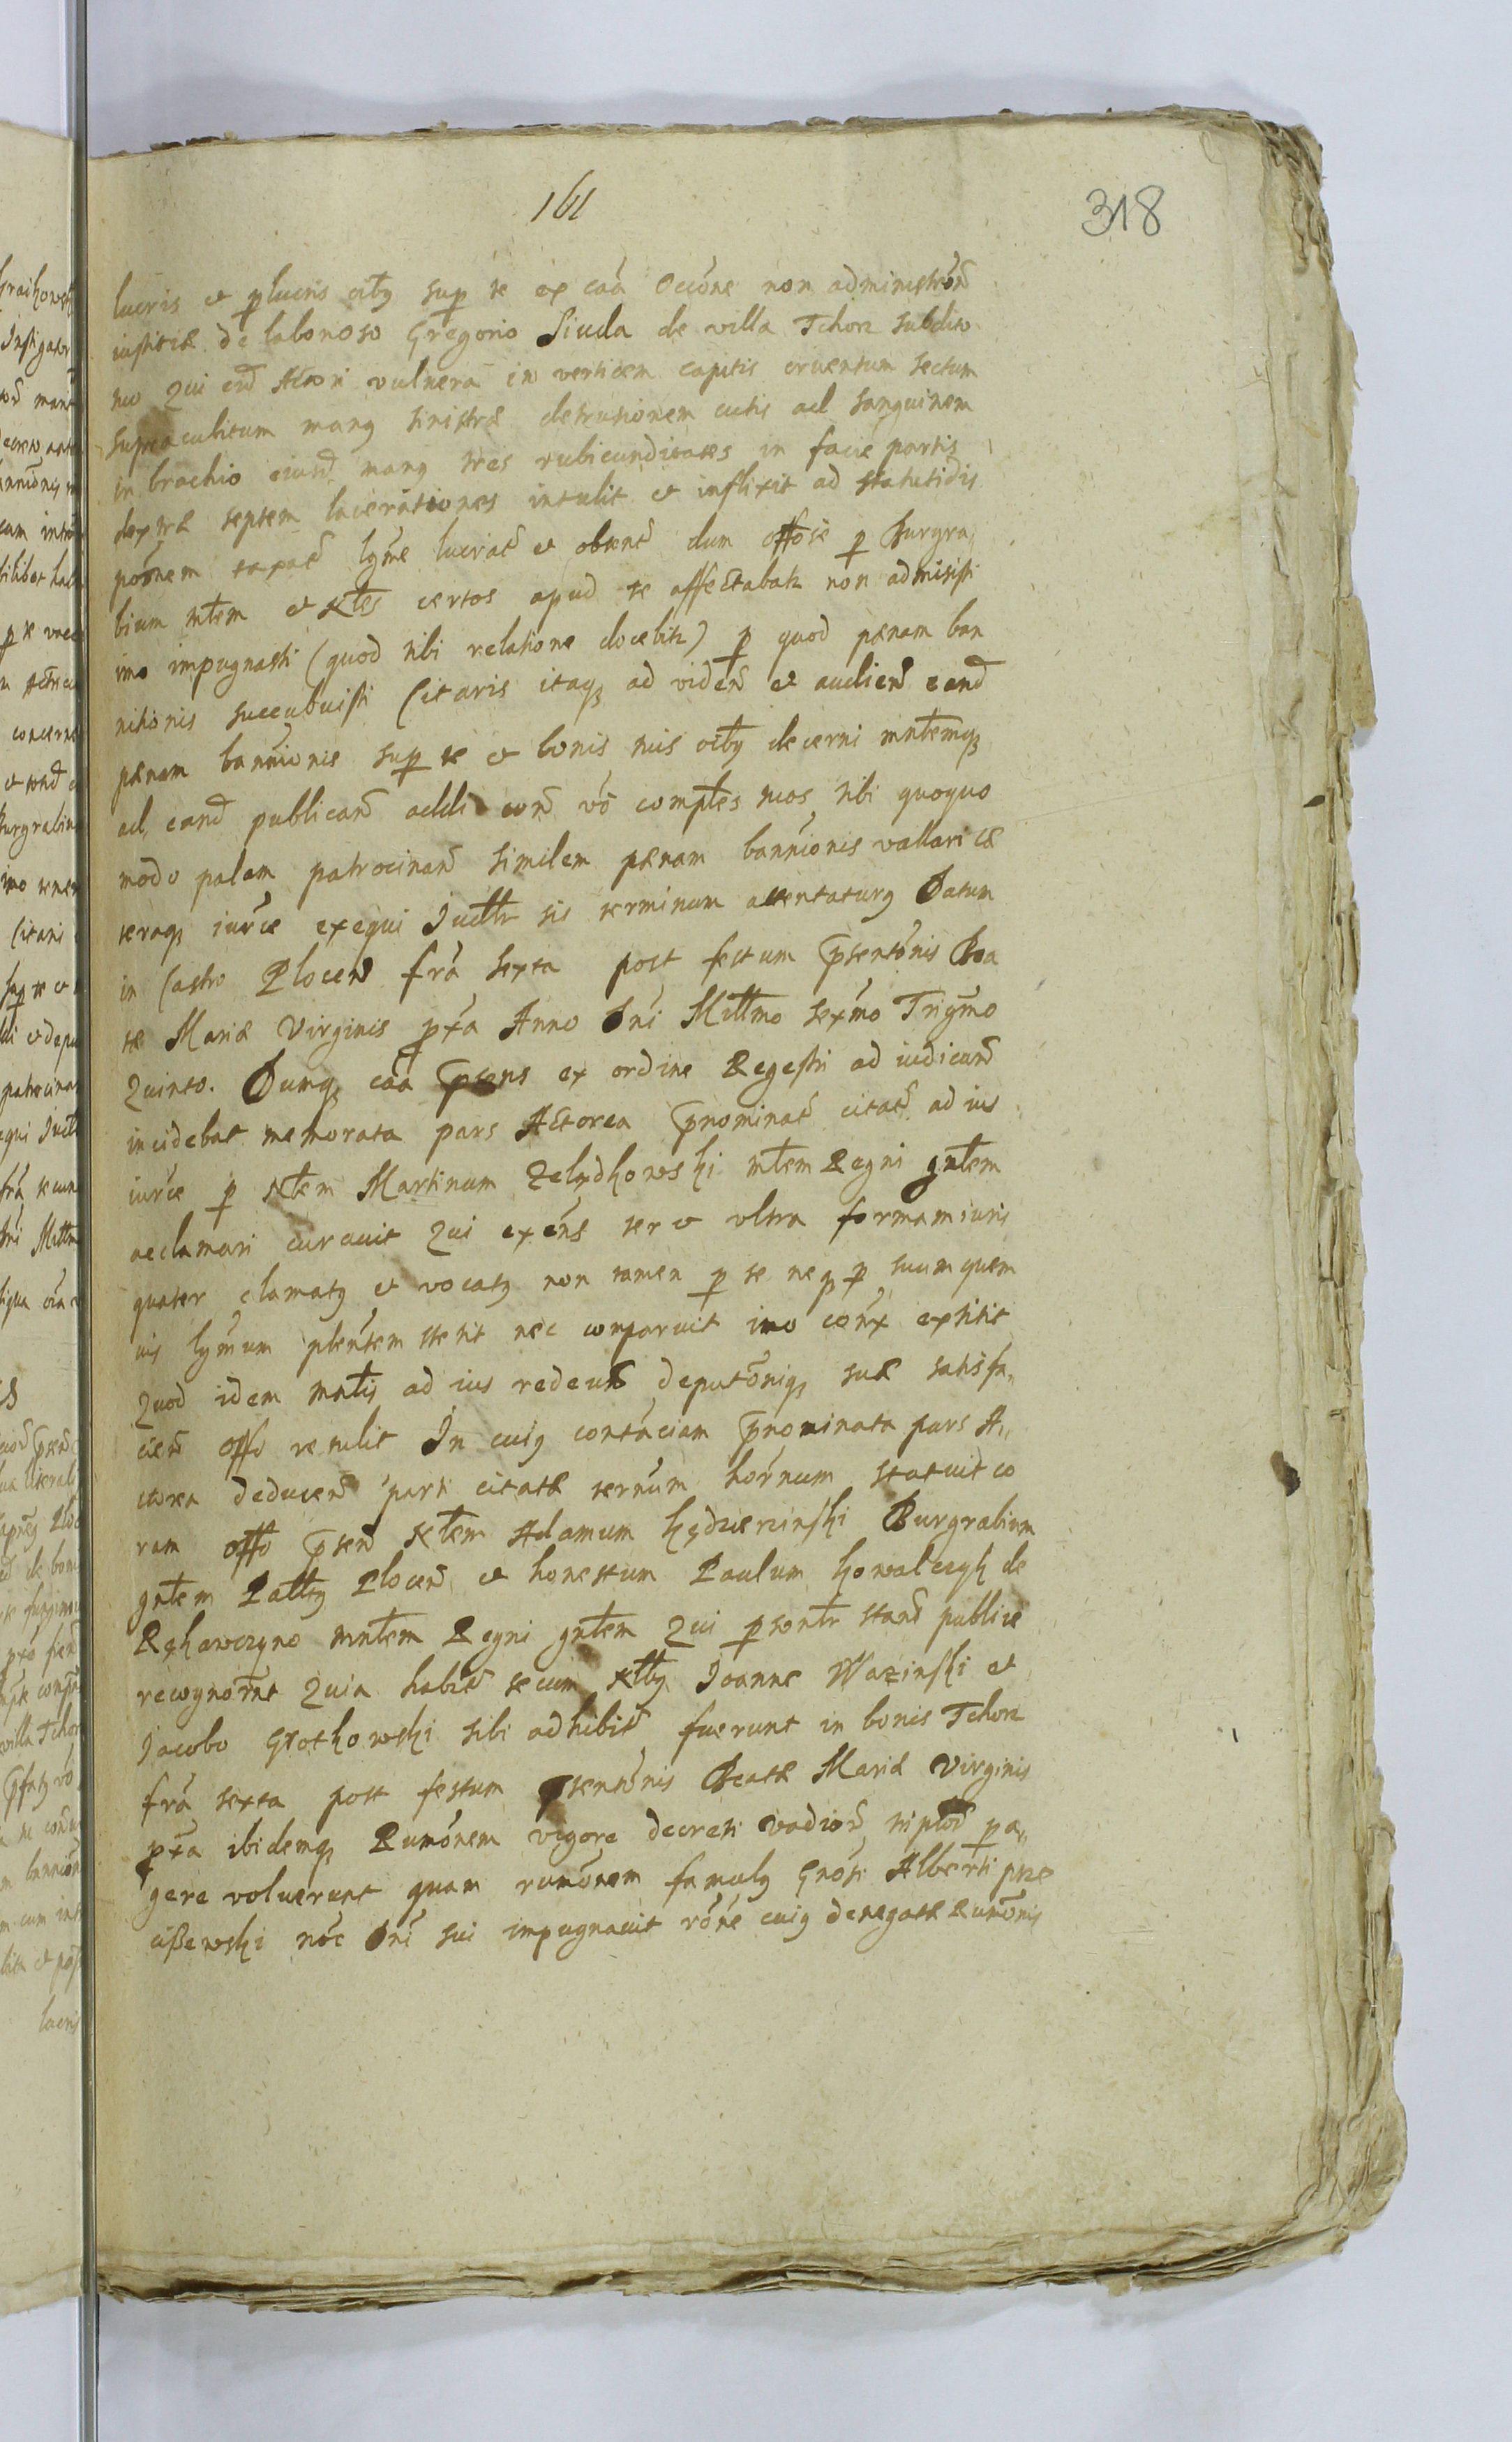 161
318
lucris et plucris oibg sup te ex caa Occōne non administrōn
iustitiæ de laborioso Gregorio Siuda de villa Tchorz subdito
tuo Qui eid Actori vulnera in verticem capitis cruentum sectum
supra cubitum mang sinistræ detrusionem cutis ad sanguinem
in brachio eiusd mang tres rubicunditates in facie partis
dextræ septem lacerationes intulit et inflixit ad statutidis
poōnem taxat lgme lucrat et obtent dum offose p Burgra,
bium ntem et Ntes certos apud te affectabatr non admisisti
imo impugnasti (quod tibi relatione docebitr) p quod pænam ban
nitionis succubuisti Citaris itaq ad viden et audien eand
pænam bannionis sup te et bonis tuis oibg decerni mntemq
ad eand publicand addi con vō comptes tuos tibi quoquo
modo palam patrocinan similem pænam bannionis vallari cæ
teraq iurice exequi Iudlr sis terminum attentaturg Datum
in Castro Plocen fra sexta post festum Psentōnis Bea
tæ Mariæ Virginis pxa Anno Dni Millmo sexmo Trigmo
Quinto. Dumq caa Psens ex ordine Regestri ad iudicand
incidebat memorata pars Actorea Pnominat citat ad ius
iurice p Ntem Martinum Zelydkowski ntem Regni gntem
acclamari curauit Qui exens ter et vltra formam iuris
quater clamatg et vocatg non tamen p se neq p suum quem
uis lgmum plentem stetit nec comparuit imo contx extitit
Quod idem mntis ad ius rediens deputōniq suæ satisfa,
cien offo retulit In cuig contāciam Pnominata pars A,,
ctorea deducen parti citatæ ternum hornum statuit co
ram offo Psen Ntem Adamum Kędzierzinski Burgrabium
gntem Pallg Plocen et honestum Paulum Kowalczyk de
Rękawczyno mntem Regni gntem Qui psontr stand publice
recognornt Quia habit secum Ntbg Ioanne Wazinski et
Iacobo Grotkowski sibi adhibit fuerunt in bonis Tchorz
fra sexta post festum Psentōnis Beatæ Mariæ Virginis
pxa ibidemq Rumōnem vigore decreti vadior triplor pa,,
gere voluerunt quam rumōnem famulg Gnosi Alberti prze
cißewski noē Dni sui impugnauit rōne cuig denegatæ Rumōnis